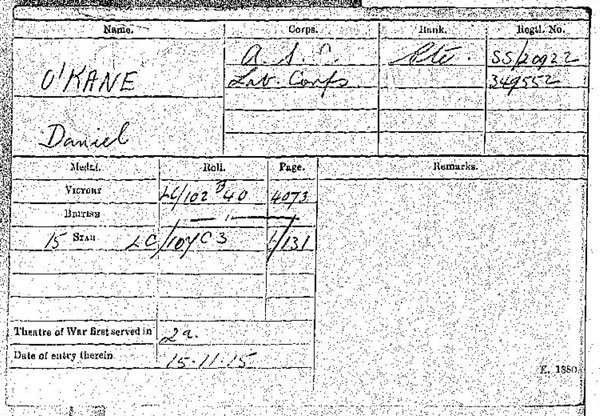 Name. Corps. Rank. Regtl. No.
A S C Pte. SS/20922
O'KANE Lab. Corps 349552
Daniel
Medal. Roll. Page. Remarks.
VICTORY LC/102 B 40 4073
BRITISH
15 STAR LC/104 C 3 131
Theatre of War first served in 2a.
Date of entry therein 15.11.15
E. 1380